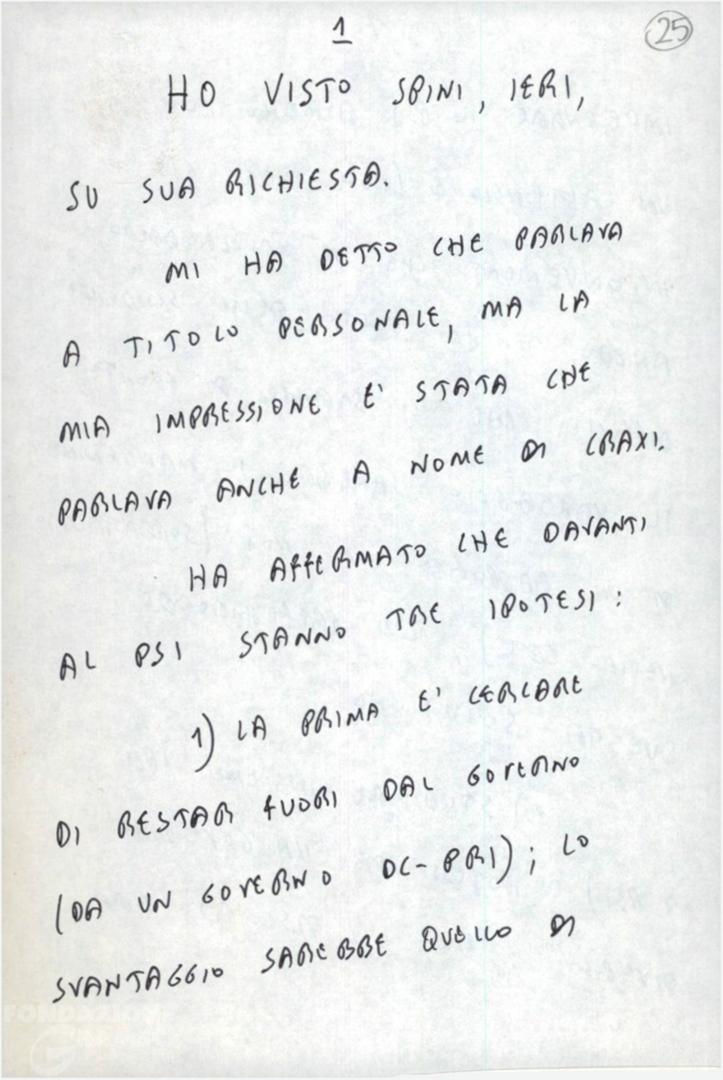 1
25
HO VISTO SPINI, IERI,
SU SUA RICHIESTA.
MI HA DETTO CHE PARLAVA
A TITOLO PERSONALE, MA LA
MIA IMPRESSIONE E' STATA CHE
PARLAVA ANCHE A NOME DI CRAXI.
HA AFFERMATO CHE DAVANTI
AL PSI STANNO TRE IPOTESI:
1) LA PRIMA E' CERCARE
DI RESTAR FUORI DAL GOVERNO
(DA UN GOVERNO DC-PRI); LO
SVANTAGGIO SAREBBE QUELLO DI
FONDAZIONE